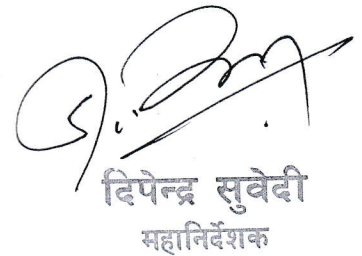 दिपेन्द्र सुवेदी
महानिर्देशक